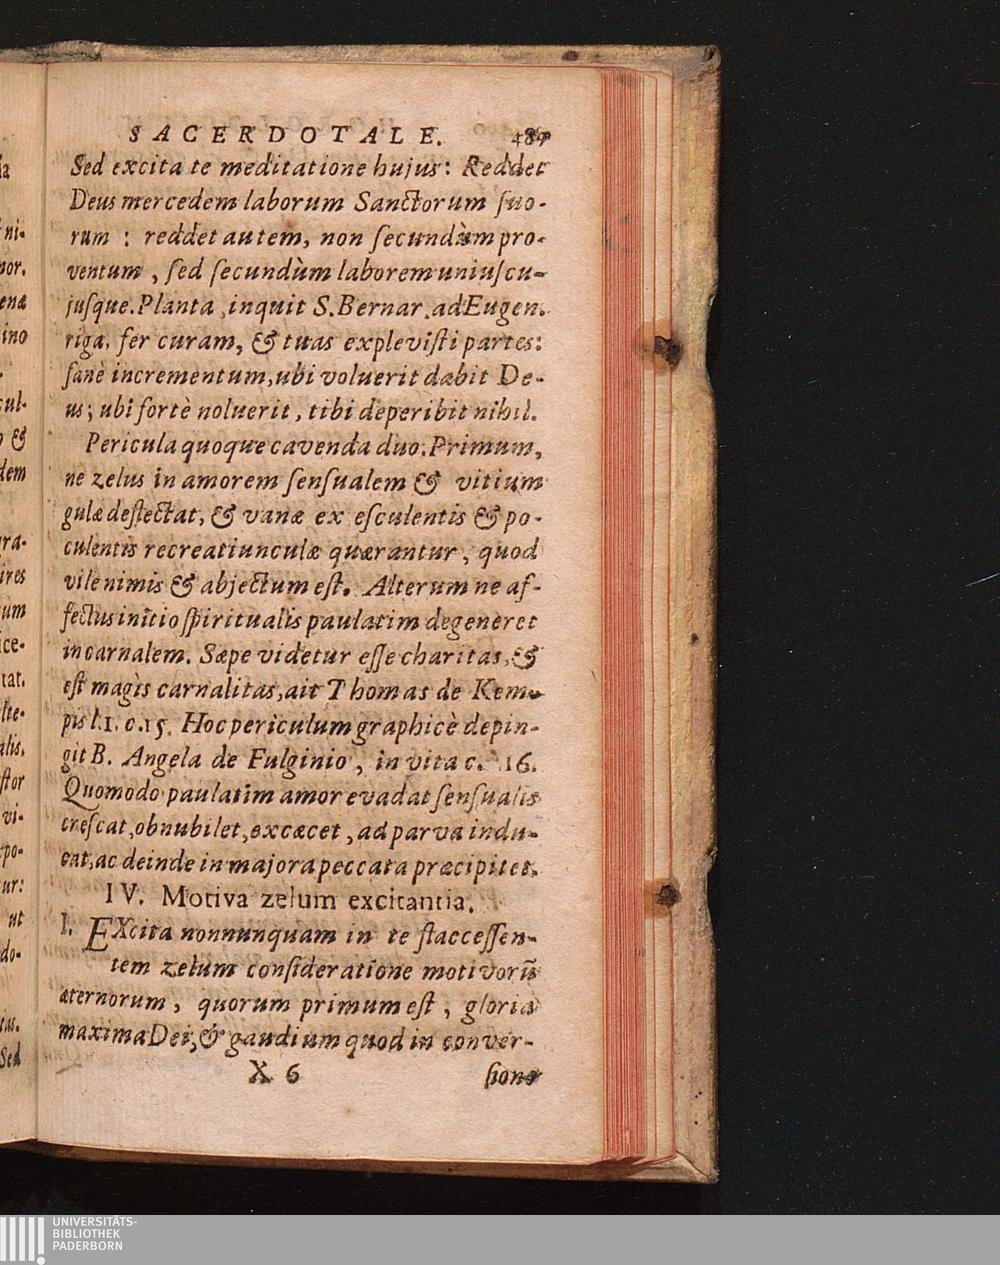 SACERDOTALE. 487
Sed excita te meditatione hujus: Reddet
Deus mercedem laborum Sanctorum ſuo-
rum : reddet autem, non ſecundùm pro-
ventum, ſed ſecundùm laborem uniuſcu-
juſque. Planta, inquit S. Bernar. ad Eugen.
riga, fer curam, & tuas explevisti partes:
ſanè incrementum, ubi voluerit dabit De-
us; ubi fortè noluerit, tibi deperibit nihil.
Pericula quoque cavenda duo. Primum,
ne zelus in amorem ſenſualem & vitium
gulæ deflectat, & vanæ ex eſculentis & po-
culentis recreatiunculæ quærantur, quod
vile nimis & abjectum eſt. Alterum ne af-
fectus initio ſpiritualis paulatim degeneret
in carnalem. Sæpe videtur eſſe charitas, &
eſt magìs carnalitas, ait Thomas de Kem-
pis l. 1. c. 15. Hoc periculum graphicè depin-
git B. Angela de Fulginio, in vita c. 16.
Quomodo paulatim amor evadat ſenſualis
creſcat, obnubilet, excæcet, ad parva indu-
cat, ac deinde in majora peccata præcipitet.
IV. Motiva zelum excitantia.
I. EXcita nonnunquam in te flacceſſen-
tem zelum conſideratione motivorũ
æternorum, quorum primum eſt, gloria
maxima Dei, & gaudium quod in conver-
X 6 ſione
UNIVERSITÄTS-
BIBLIOTHEK
PADERBORN